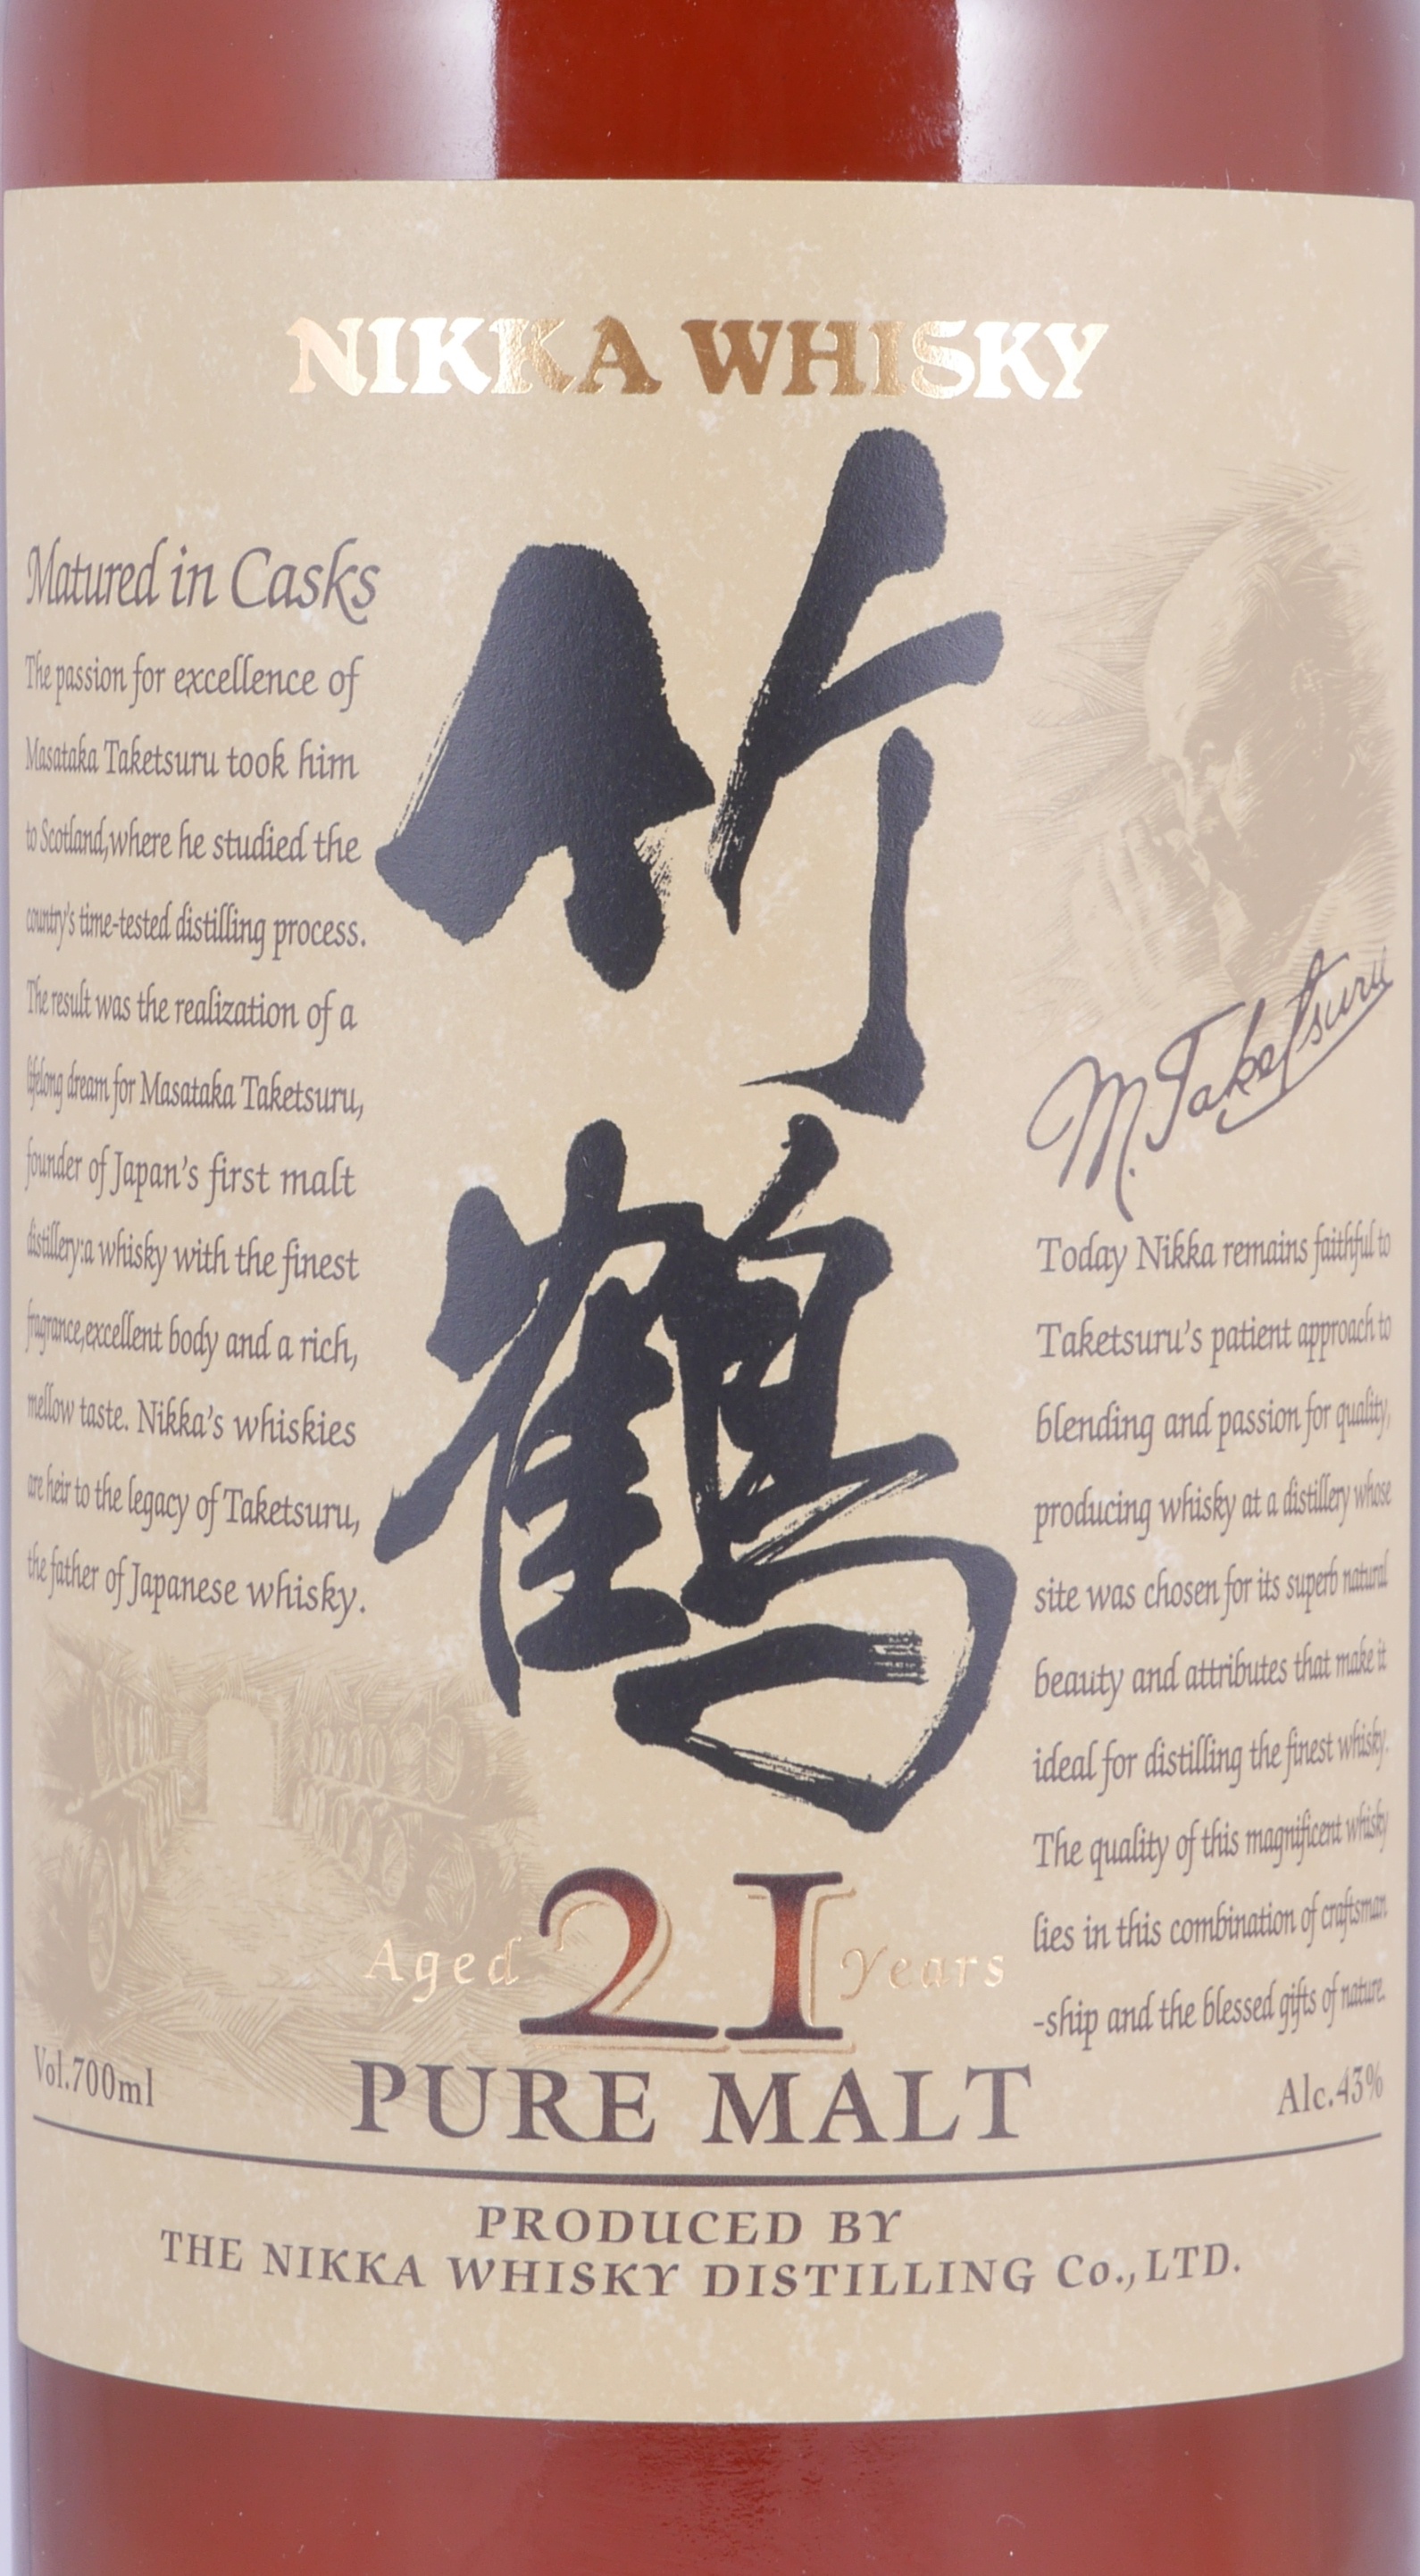 NIKKA WHISKY
竹鶴
Matured in Casks
The passion for excellence of
Masataka Taketsuru took him
to Scotland,where he studied the
country's time-tested distilling process.
The result was the realization of a
lifelong dream for Masataka Taketsuru,
founder of Japan's first malt
distillery:a whisky with the finest
fragrance,excellent body and a rich,
mellow taste. Nikka's whiskies
are heir to the legacy of Taketsuru,
the father of Japanese whisky.
M. Taketsuru
Today Nikka remains faithful to
Taketsuru's patient approach to
blending and passion for quality,
producing whisky at a distillery whose
site was chosen for its superb natural
beauty and attributes that make it
ideal for distilling the finest whisky.
The quality of this magnificent whisky
lies in this combination of craftsman
-ship and the blessed gifts of nature.
Aged 21 Years
Vol.700ml
PURE MALT
Alc.43%
PRODUCED BY
THE NIKKA WHISKY DISTILLING Co.,LTD.